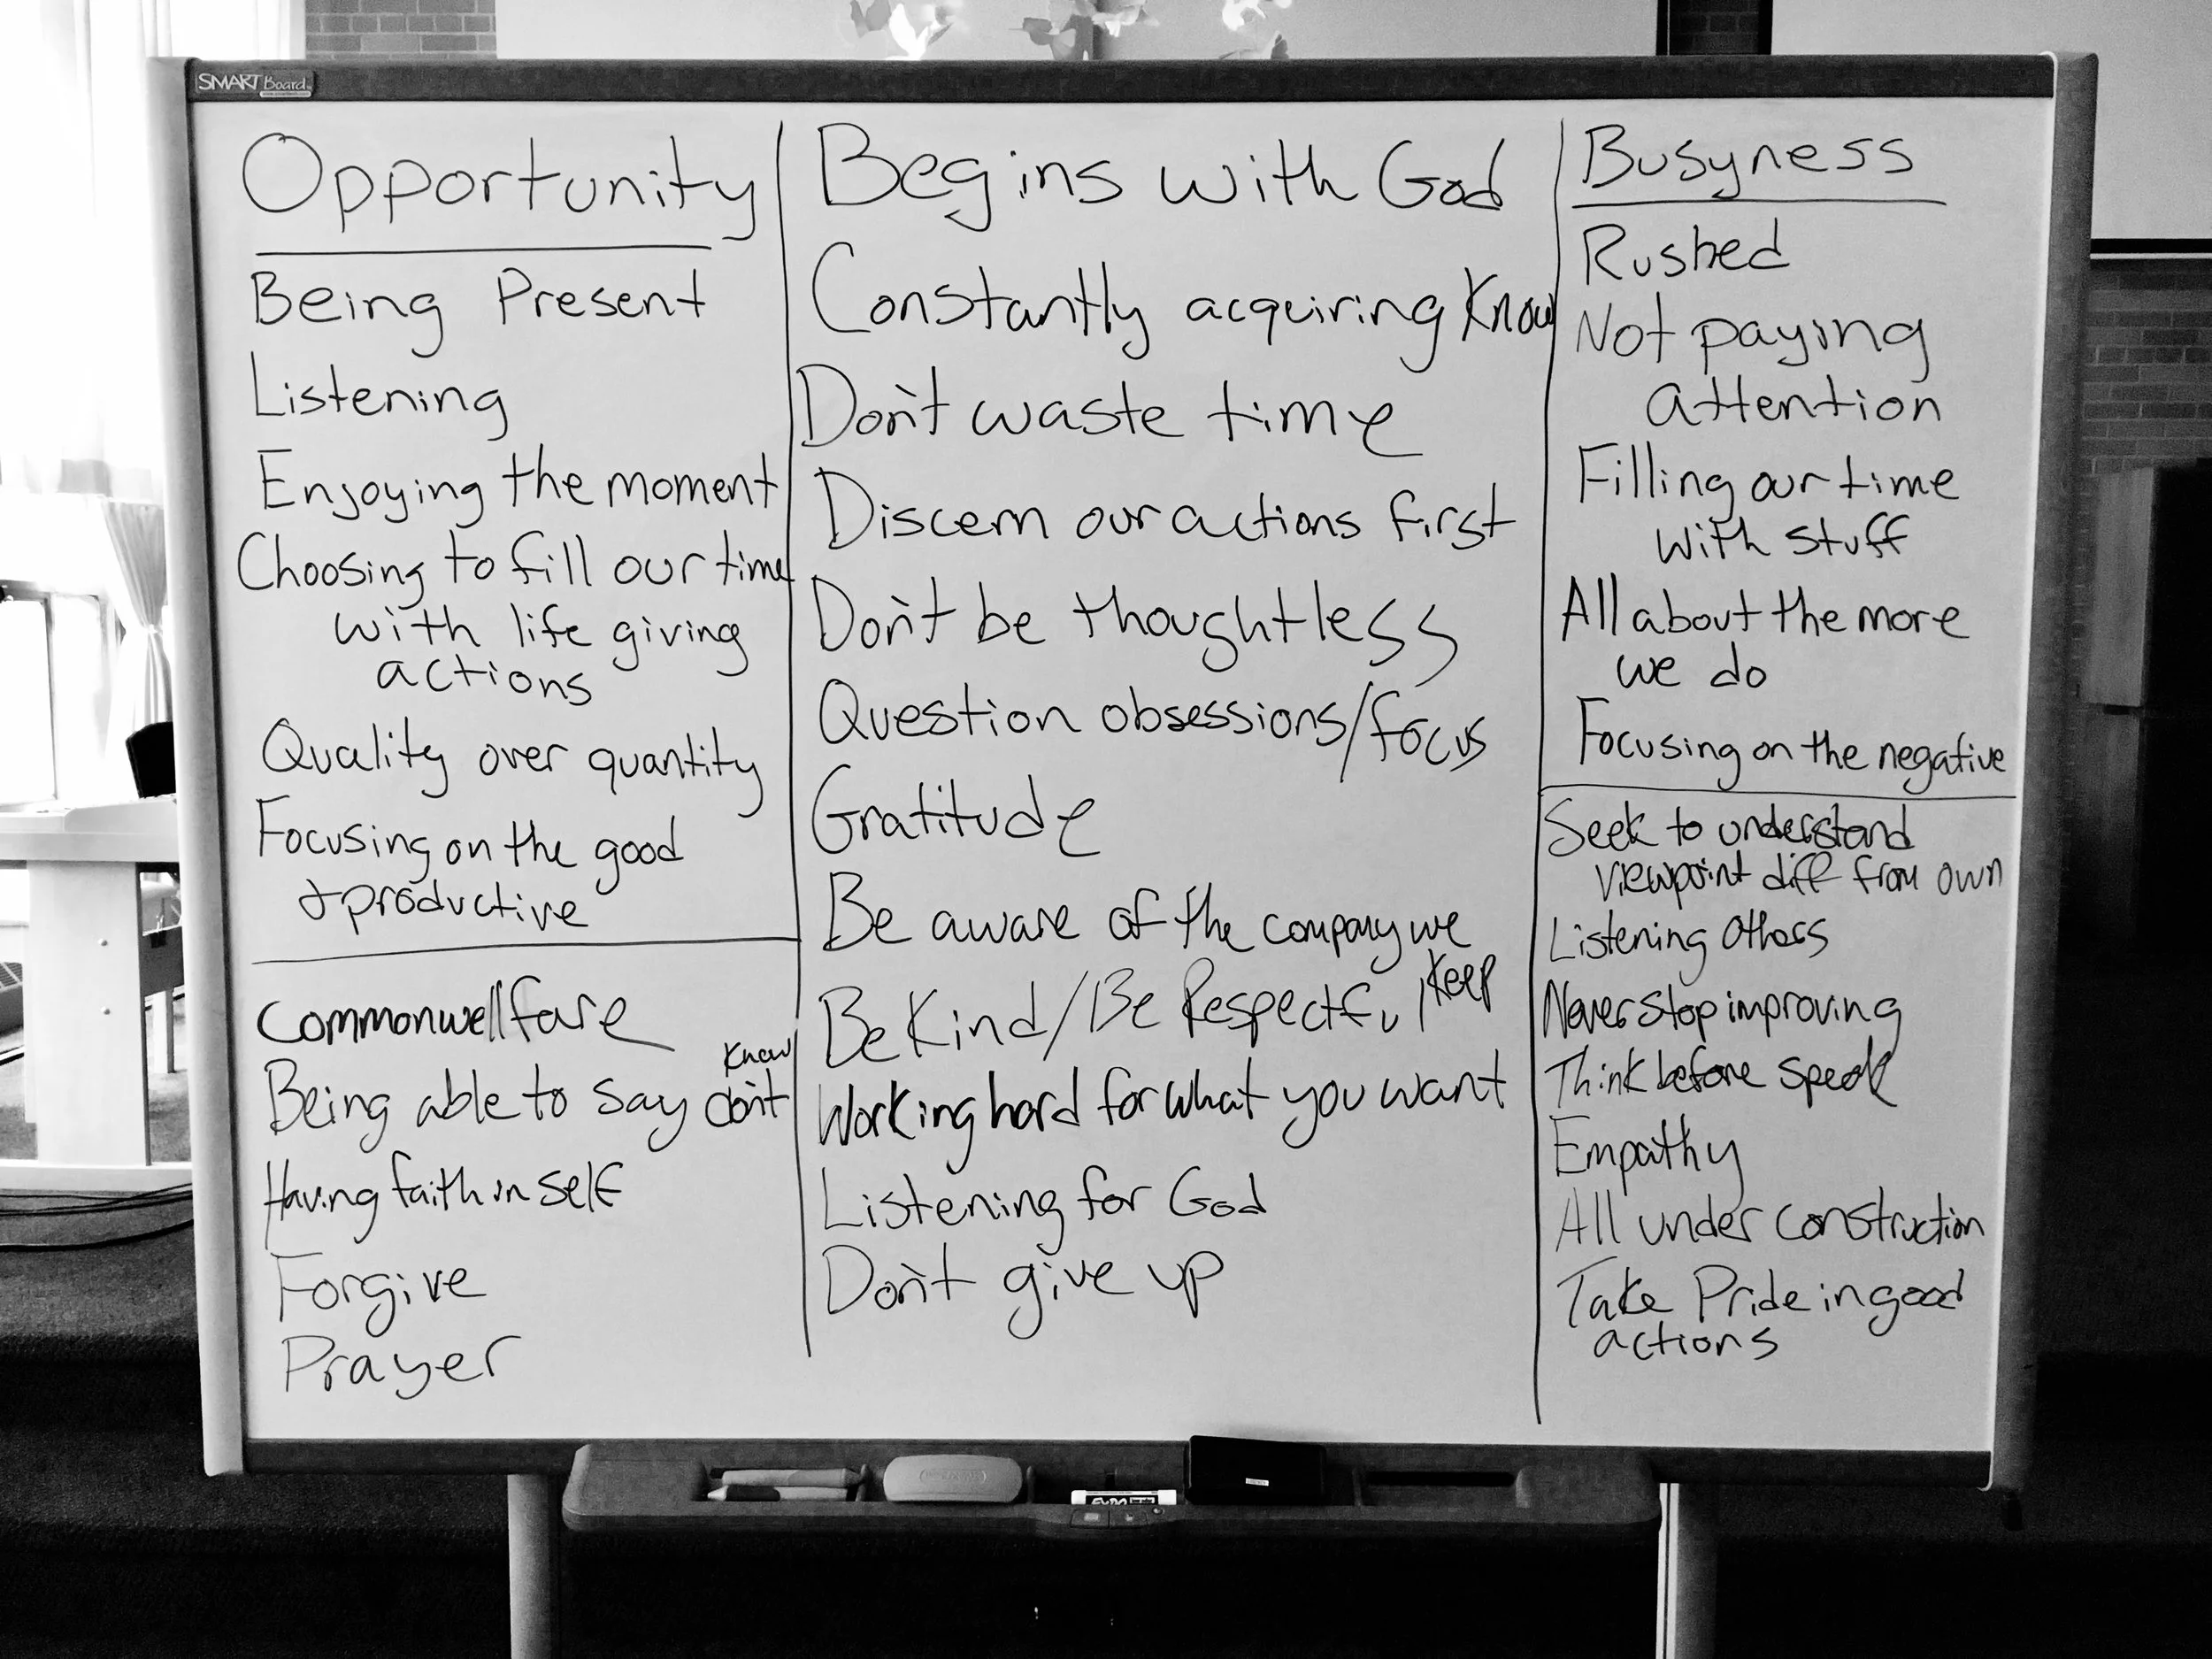 SMART Board
Opportunity
Being Present
Listening
Enjoying the moment
Choosing to fill our time
with life giving
actions
Quality over quantity
Focusing on the good
+ productive
Commonwellfare
Know
Being able to say don't
Having faith in self
Forgive
Prayer
Begins with God
Constantly acquiring Know
Don't waste time
Discern our actions first
Don't be thoughtless
Question obsessions/focus
Gratitude
Be aware of the company we
Keep
Be Kind/Be Respectful
Working hard for what you want
Listening for God
Don't give up
Busyness
Rushed
Not paying
attention
Filling our time
with stuff
All about the more
we do
Focusing on the negative
Seek to understand
viewpoint diff from own
Listening Others
Never stop improving
Think before speak
Empathy
All under construction
Take Pride in good
actions
EXPO